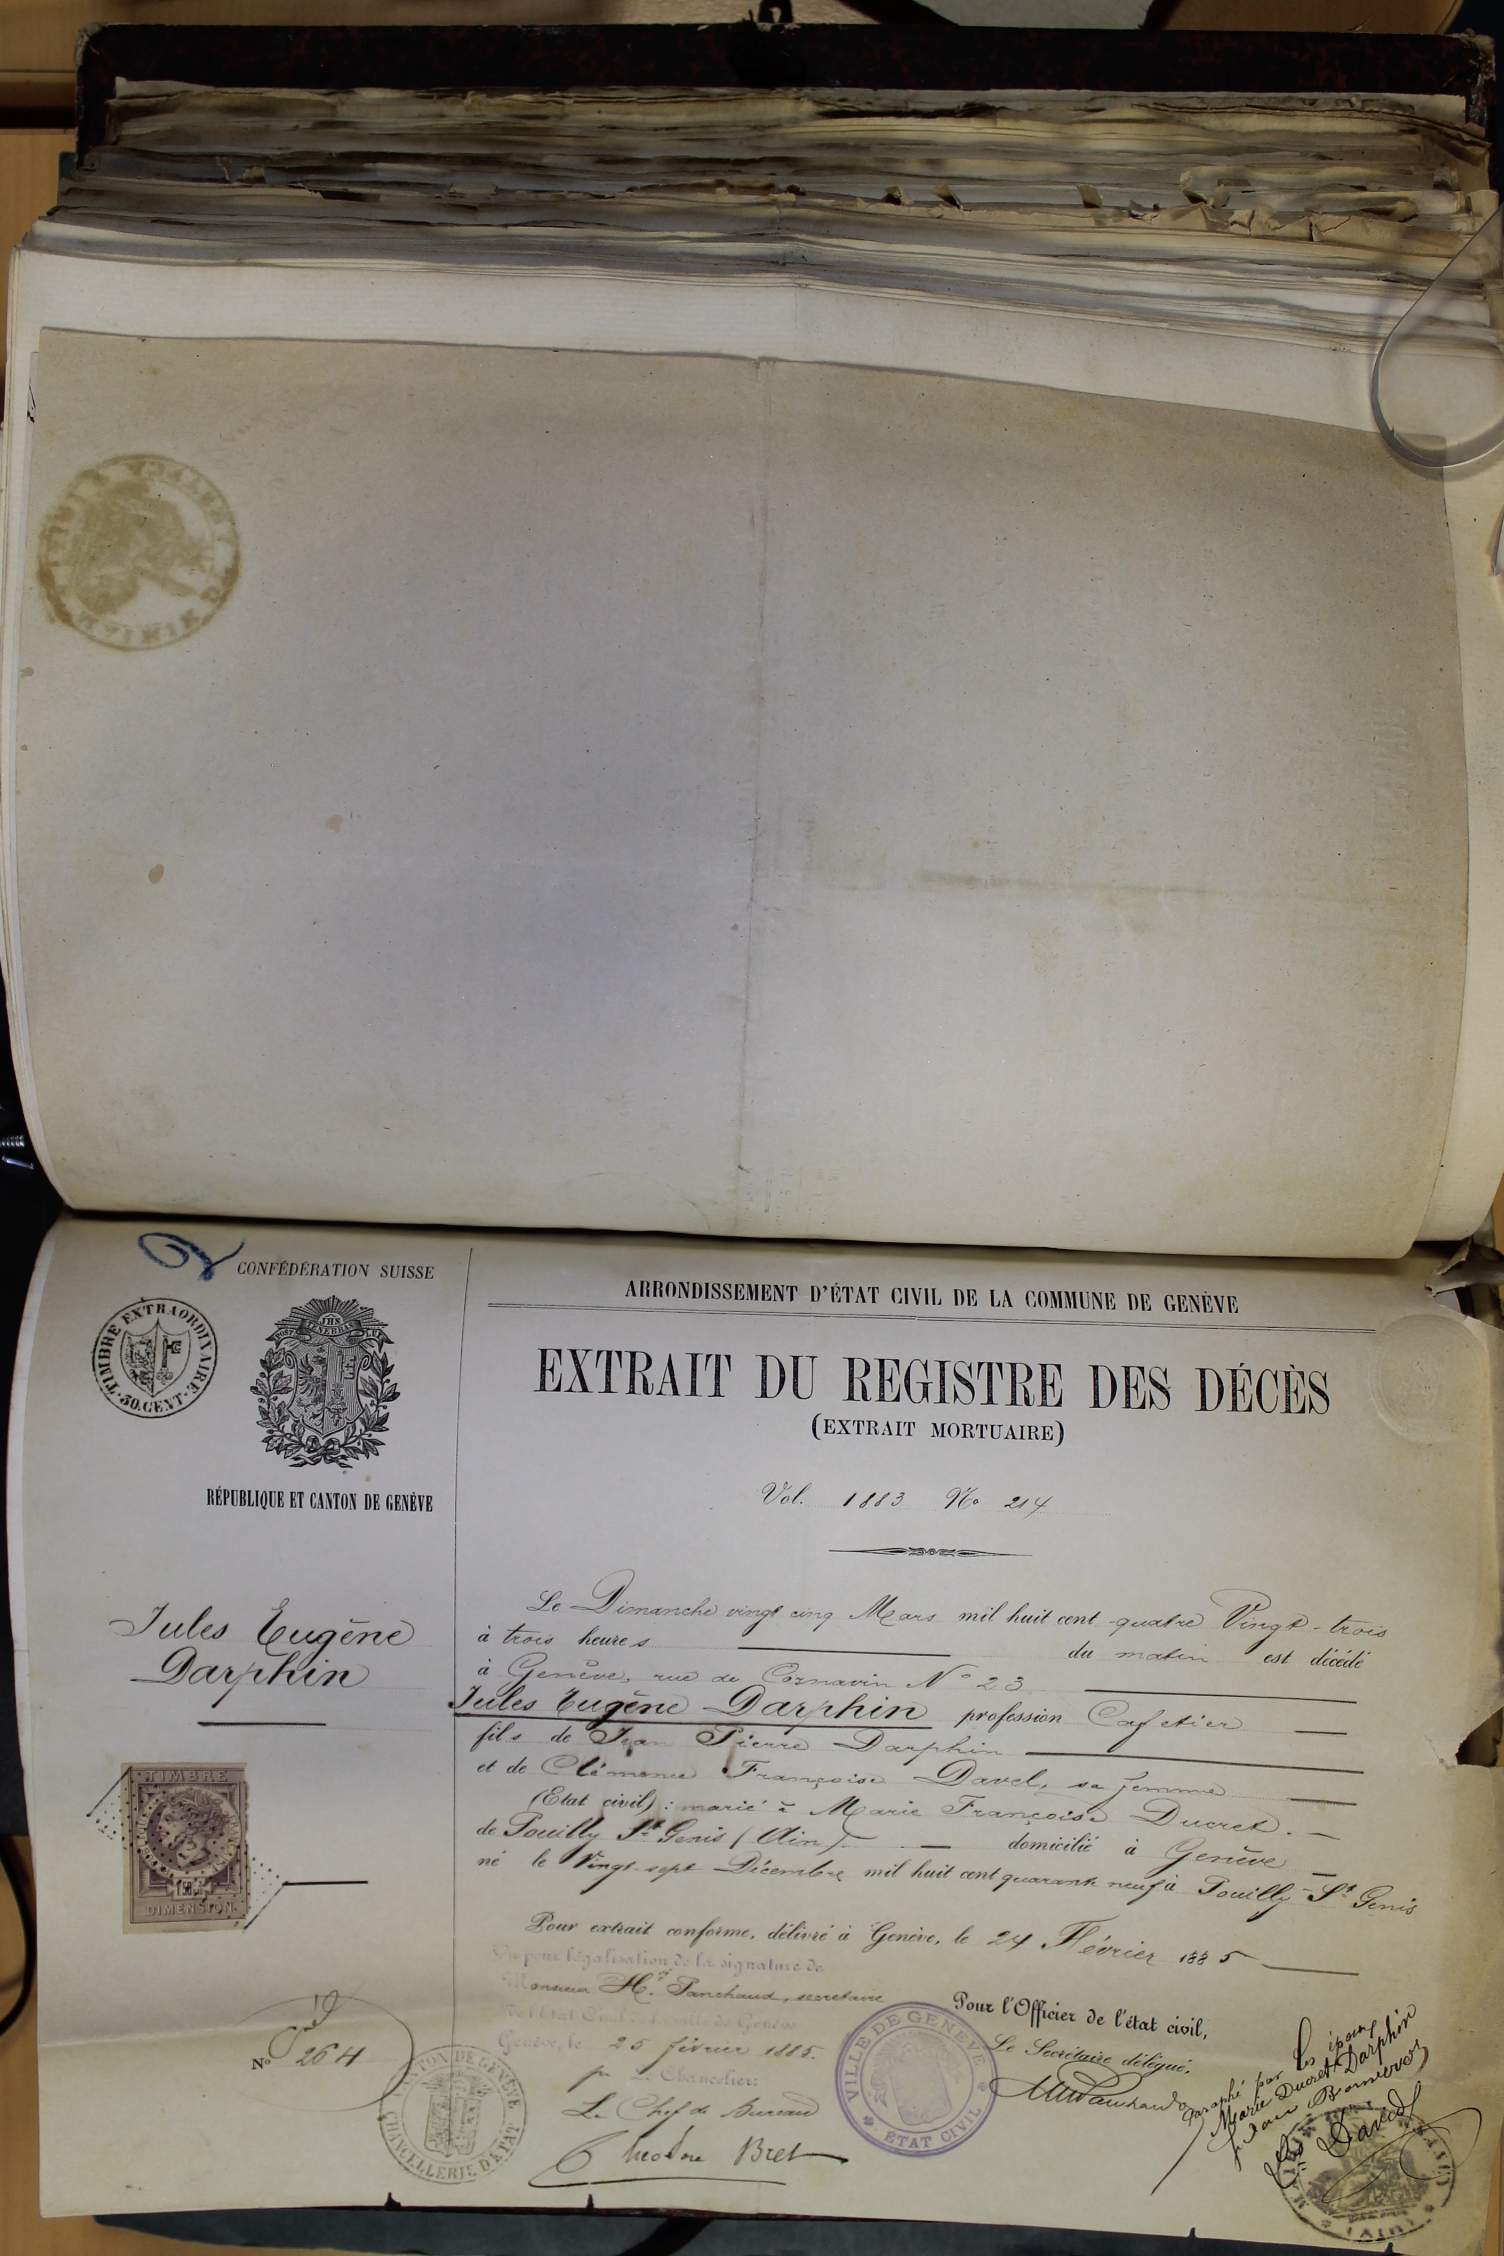 CONFÉDÉRATION SUISSE
TIMBRE EXTRAORDINAIRE
30. CENT.
POST TENEBRAS LUX
JHS
RÉPUBLIQUE ET CANTON DE GENÈVE
Jules Eugène
Darphin
TIMBRE
DIMENSION
Nº 264
ARRONDISSEMENT D'ÉTAT CIVIL DE LA COMMUNE DE GENÈVE
EXTRAIT DU REGISTRE DES DÉCÈS
(EXTRAIT MORTUAIRE)
Vol. 1883 No 214
Le Dimanche vingt cinq Mars mil huit cent quatre Vingt-trois
à trois heures du matin est décédé
à Genève, rue de Cornavin Nº 23
Jules Eugène Darphin profession Cafetier
fils de Jean Pierre Darphin
et de Clémence Françoise Davel, sa femme
(Etat civil): marié à Marie Françoise Ducret.
de Pouilly St Genis (Ain) domicilié à Genève
né le Vingt-sept Décembre mil huit cent quarante neuf à Pouilly-St Genis
Pour extrait conforme, délivré à Genève, le 24 Février 1885
Vu pour légalisation de la signature de
Monsieur Hri Panchaud, secrétaire
Genève, le 25 février 1885.
Chancelier:
Le Chef de Bureau
Theodore Bret
CANTON DE GENÈVE
CHANCELLERIE D'ETAT
VILLE DE GENÈVE
ETAT CIVIL
Pour l'Officier de l'état civil,
Le Secrétaire délégué,
Panchaud
paraphé par les époux
Marie Ducret Darphin
MAIRIE
(AIN)